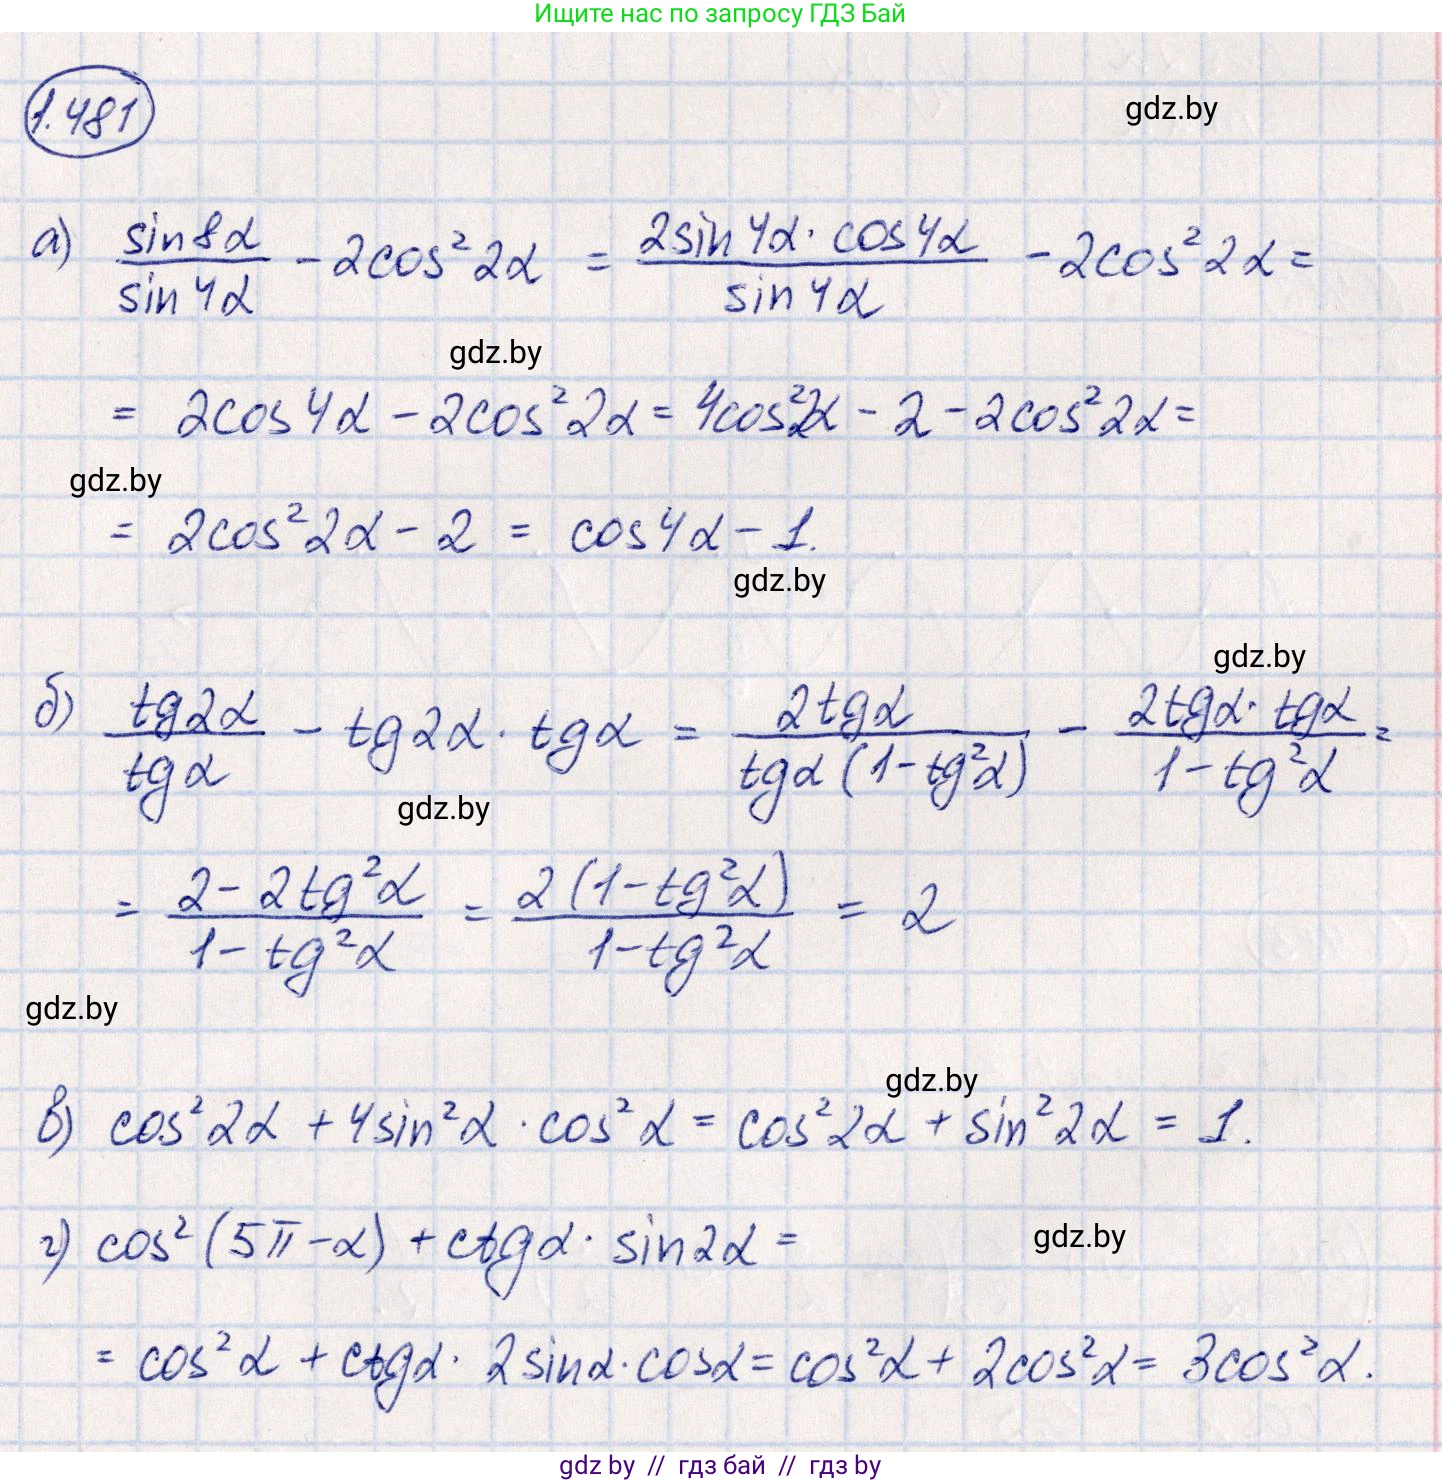 Ищите нас по запросу ГДЗ Бай
1.481
gdz.by
а) sin8α/sin4α - 2cos²2α = 2sin4α·cos4α/sin4α - 2cos²2α =
gdz.by
= 2cos4α - 2cos²2α = 4cos²2α - 2 - 2cos²2α =
gdz.by
= 2cos²2α - 2 = cos4α - 1.
gdz.by
gdz.by
б) tg2α/tgα - tg2α·tgα = 2tgα/tgα(1-tg²α) - 2tgα·tgα/1-tg²α =
gdz.by
= 2-2tg²α/1-tg²α = 2(1-tg²α)/1-tg²α = 2
gdz.by
gdz.by
в) cos²2α + 4sin²α·cos²α = cos²2α + sin²2α = 1.
г) cos²(5π-α) + ctgα·sin2α =
gdz.by
= cos²α + ctgα·2sinα·cosα = cos²α + 2cos²α = 3cos²α.
gdz.by // гдз бай // гдз by